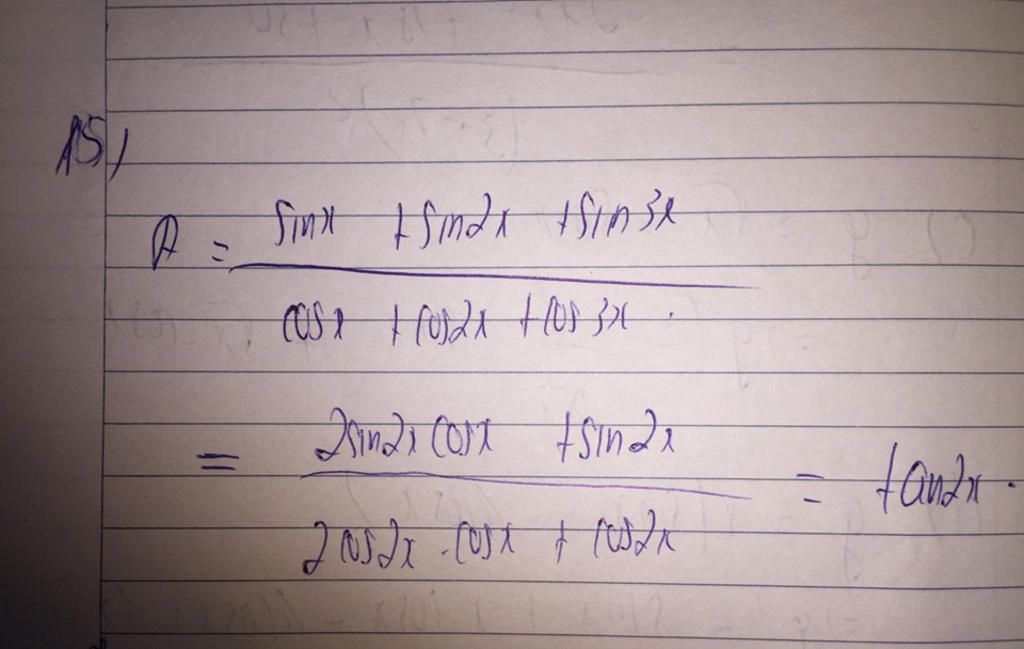 15)
A = sinx + sin2x + sin3x
cosx + cos2x + cos3x .
= 2sin2x cosx + sin2x = tan2x .
2cos2x . cosx + cos2x